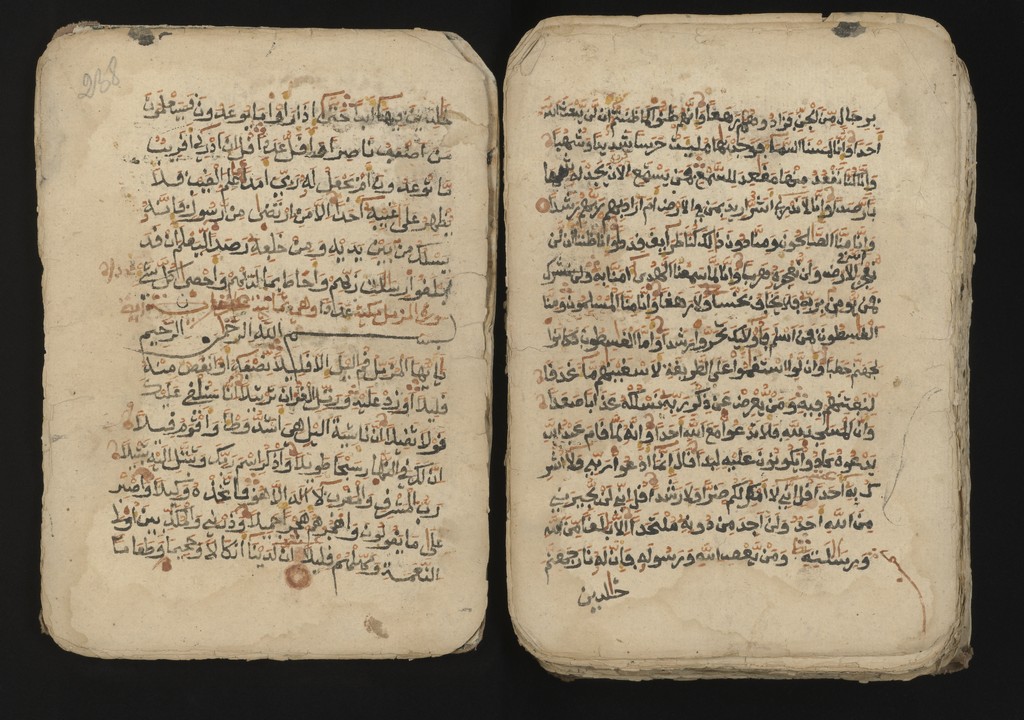 برجال من الجن فزادوهم رهقا وانهم ظنوا كما ظننتم ان لن يبعث الله
احدا وانا لمسنا السما فوجدنها مليت حرسا شديدا وشهبا
وانا كنا نقعد منها مقعد للسمع فمن يستمع الان يجد له شهابا
رصدا وانا لا ندري اشر اريد بمن في الارض ام اراد بهم ربهم رشدا
وانا منا الصالحون ومنا دون ذلك كنا طرايق قددا وانا ظننا ان لن
نعجز الارض ولن نعجزه هربا وانا لما سمعنا الهدى امنا به
فمن يومن بربه فلا يخاف بخسا ولا رهقا وانا منا المسلمون ومنا
القسطون فمن اسلم فاوليك تحروا رشدا واما القسطون فكانوا
لجهنم حطبا وان لو استقموا على الطريقة لاسقينهم ما غدقا
لنفتنهم فيه ومن يعرض عن ذكر ربه نسلكه عذابا صعدا
وان المسجد لله فلا تدعوا مع الله احدا وانه لما قام عبد الله
يدعوه كادوا يكونون عليه لبدا قال انما ادعوا ربي ولا اشر
ك به احدا قل اني لا املك لكم ضرا ولا رشدا قل اني لن يجيرني
من الله احد ولن اجد من دونه ملتحدا الا بلغا من الله
ورسلته ومن يعص الله ورسوله فان له نار جهنم
خالدين
خالدين فيها ابدا حتى اذا راوا ما يوعدون فسيعلمون
من اضعف ناصرا واقل عددا قل ان ادري اقريب
ما توعدون ام يجعل له ربي امدا علم الغيب فلا
يظهر على غيبه احدا الا من ارتضى من رسول فانه
يسلك من بين يديه ومن خلفه رصدا ليعلم ان قد
ابلغوا رسلت ربهم واحاط بما لديهم واحصى كل شي
عددا
سورة المزمل مكية
بسم الله الرحمن الرحيم
يايها المزمل قم اليل الا قليلا نصفه او انقص منه
قليلا او زد عليه ورتل القران ترتيلا انا سنلقي عليك
قولا ثقيلا ان ناشية اليل هي اشد وطا واقوم قيلا
ان لك في النهار سبحا طويلا واذكر اسم ربك وتبتل اليه تبتيلا
رب المشرق والمغرب لا اله الا هو فاتخذه وكيلا واصبر
على ما يقولون واهجرهم هجرا جميلا وذرني والمكذبين اولي
النعمة ومهلهم قليلا ان لدينا انكالا وجحيما وطعاما